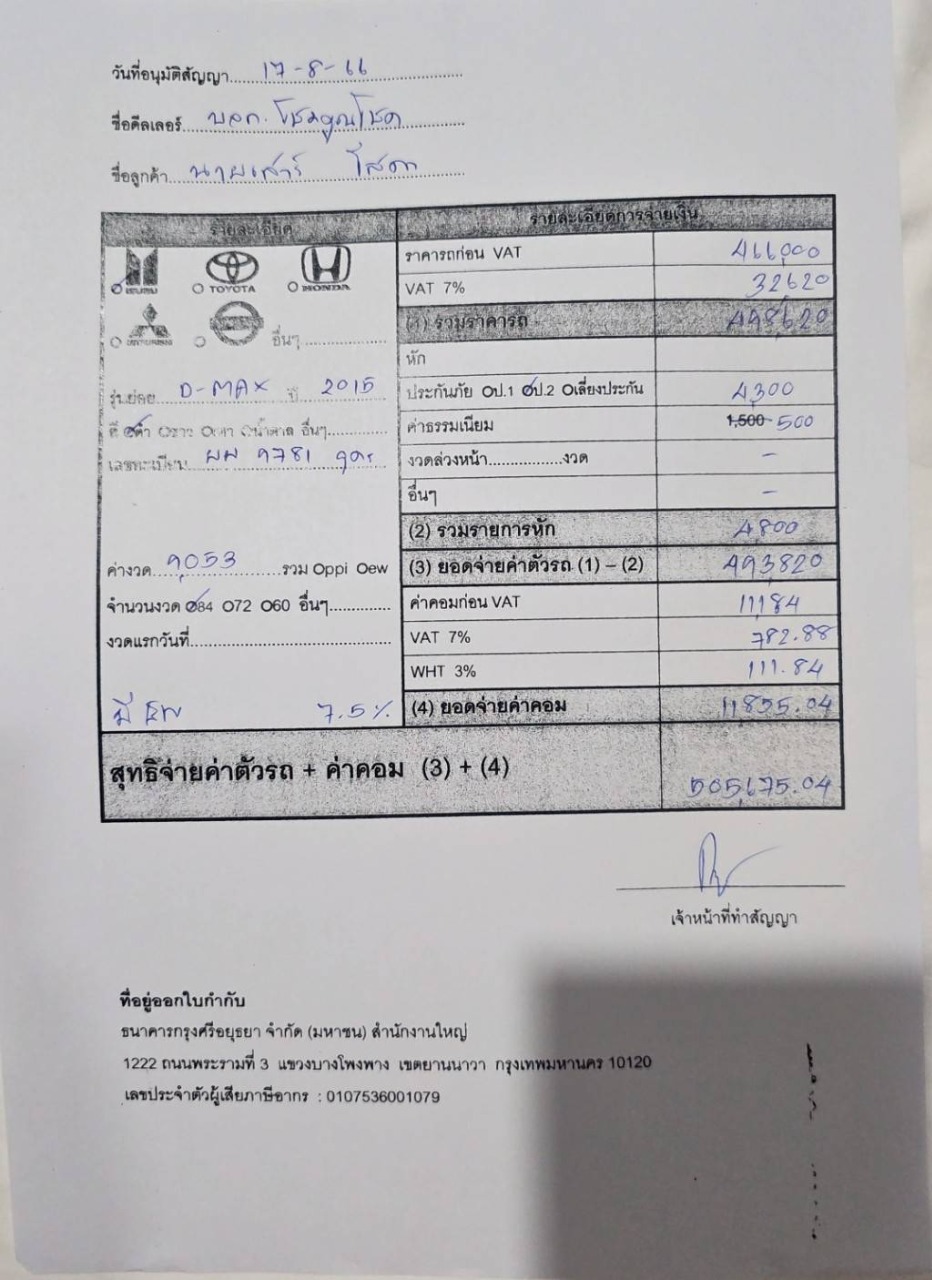 วันที่อนุมัติสัญญา 17-8-66
ชื่อดีลเลอร์ บจก.
ชื่อลูกค้า นายเสาร์ โสดา
รายละเอียด
รายละเอียดการจ่ายเงิน
ISUZU O TOYOTA O HONDA
ราคารถก่อน VAT 466,000
VAT 7% 32,620
(1) รวมราคารถ 498,620
O MITSUBISHI O NISSAN อื่นๆ
หัก
รุ่นย่อย D-MAX ปี 2015
ประกันภัย Oป.1 Oป.2 Oเลี่ยงประกัน 4,300
สี Oดำ Oขาว Oเทา Oน้ำตาล อื่นๆ
ค่าธรรมเนียม 1,500 500
เลขทะเบียน ผผ 9781
งวดล่วงหน้า.................งวด -
อื่นๆ -
(2) รวมรายการหัก 4,800
ค่างวด 9,053 รวม Oppi Oew
(3) ยอดจ่ายค่าตัวรถ (1) – (2) 493,820
จำนวนงวด O84 O72 O60 อื่นๆ
ค่าคอมก่อน VAT 11,184
งวดแรกวันที่
VAT 7% 782.88
WHT 3% 111.84
มี EW 7.5%
(4) ยอดจ่ายค่าคอม 11,855.04
สุทธิจ่ายค่าตัวรถ + ค่าคอม (3) + (4) 505,675.04
เจ้าหน้าที่ทำสัญญา
ที่อยู่ออกใบกำกับ
ธนาคารกรุงศรีอยุธยา จำกัด (มหาชน) สำนักงานใหญ่
1222 ถนนพระรามที่ 3 แขวงบางโพงพาง เขตยานนาวา กรุงเทพมหานคร 10120
เลขประจำตัวผู้เสียภาษีอากร : 0107536001079